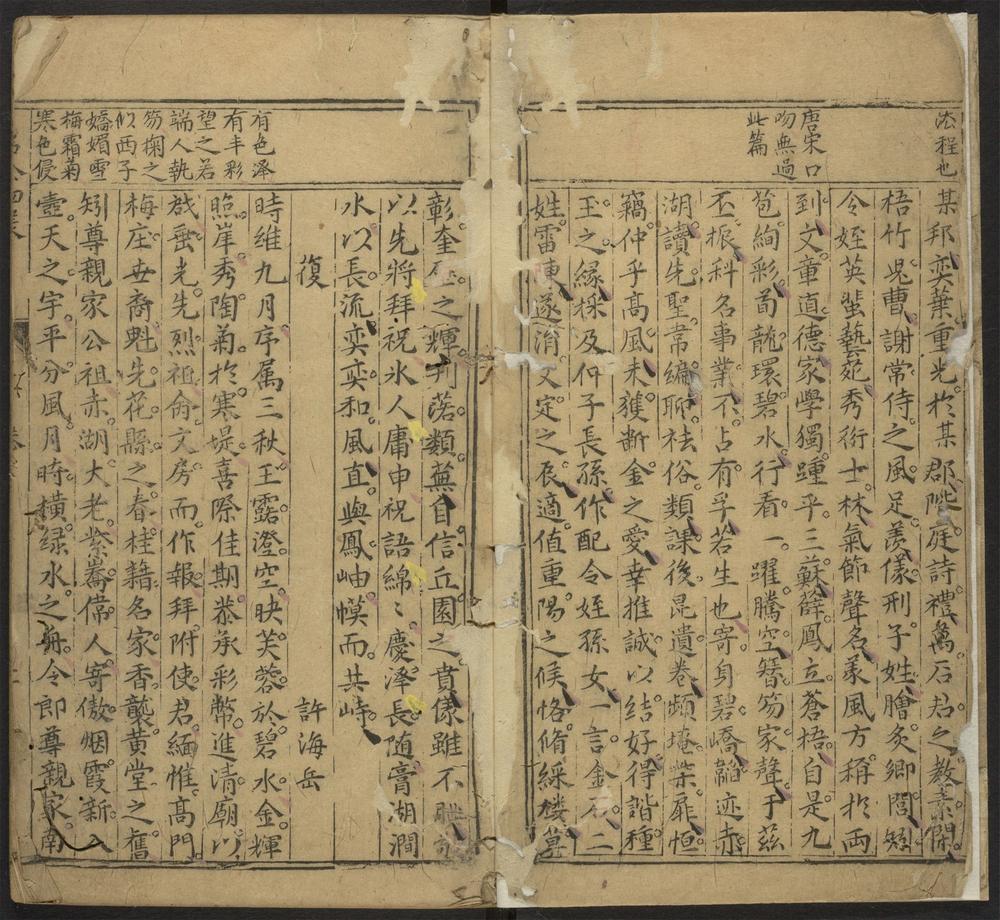 法程也
唐宋口
吻無過
此篇
某邦奕葉重光於某郡陛庭詩禮萬石君之教素閑
梧竹児曹謝常侍之風足羡儀刑子姓膾炙鄉閭
令姪英蜚藝苑秀衍士林氣節聲名羕風方稱於両
到文章道德家學獨踵乎三蘇薛鳳立蒼梧自是九
苞絢彩荀龍環碧水行看一躍騰空簪笏家聲于茲
丕振科名事業不占有孚若生也寄身碧嶠韜迹赤
湖讀先聖韋編聊祛俗類課後昆遺卷頗掩柴扉恒
竊仲乎髙風未獲斷金之愛幸推誠以結好得諧種
玉之縁採及仲子長孫作配令姪孫女一言金石二
姓雷陳遂涓文定之辰適值重陽之候恪脩綵楼
彰奎璧之輝刋落類蕪自信丘園之賁儀雖不腆
以先將拜祝氷人庸申祝語綿〻慶泽長随膏湖澗
水以長流奕奕和風直與鳳岫幞而共峙
復　許海岳
有色泽
有丰彩
望之若
端人執
笏掬之
似西子
嬌媚雪
梅霜菊
寒色侵
時維九月序属三秋玉露澄空映芙蓉於碧水金輝
照岸秀陶菊於寒堤喜際佳期恭承彩幣進清廟以
戕蚩光先烈祖侑文房而作報拜附使君緬惟髙門
梅庄世裔魁先花縣之春桂籍名家香襲黄堂之舊
矧尊親家公祖赤湖大老紫嵩偉人寄傲烟霞新入
壺天之宇平分風月時横绿水之舟令郎尊親家南